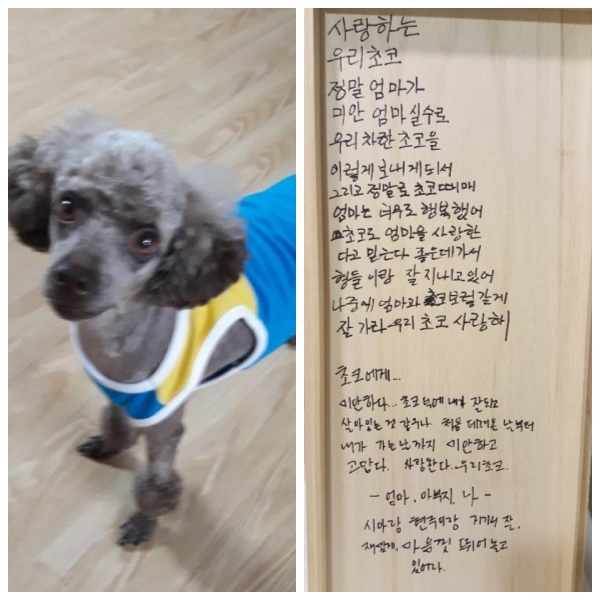 사랑하는
우리초코
정말 엄마가
미안 엄마실수로
우리 차한 초코을
이렇게 보내게 되서
그리고 정말로 초코때매
엄마는 너무도 행복했어
초코도 엄마을 사랑한
다고 믿는다 좋은데가서
형들이랑 잘 지내고있어
나중에 엄마과 초코보러갈게
잘 가라 우리 초코 사랑해
초코에게...
미안하다... 초코 덕에 내가 잘되고
살아있는 것 같구나 처음 데려온 날부터
내가 가는날까지 미안하고
고맙다. 사랑한다..우리초코.
- 엄마, 아부지, 나 -
재밌게, 마음껏 뛰어 놀고
있어라.